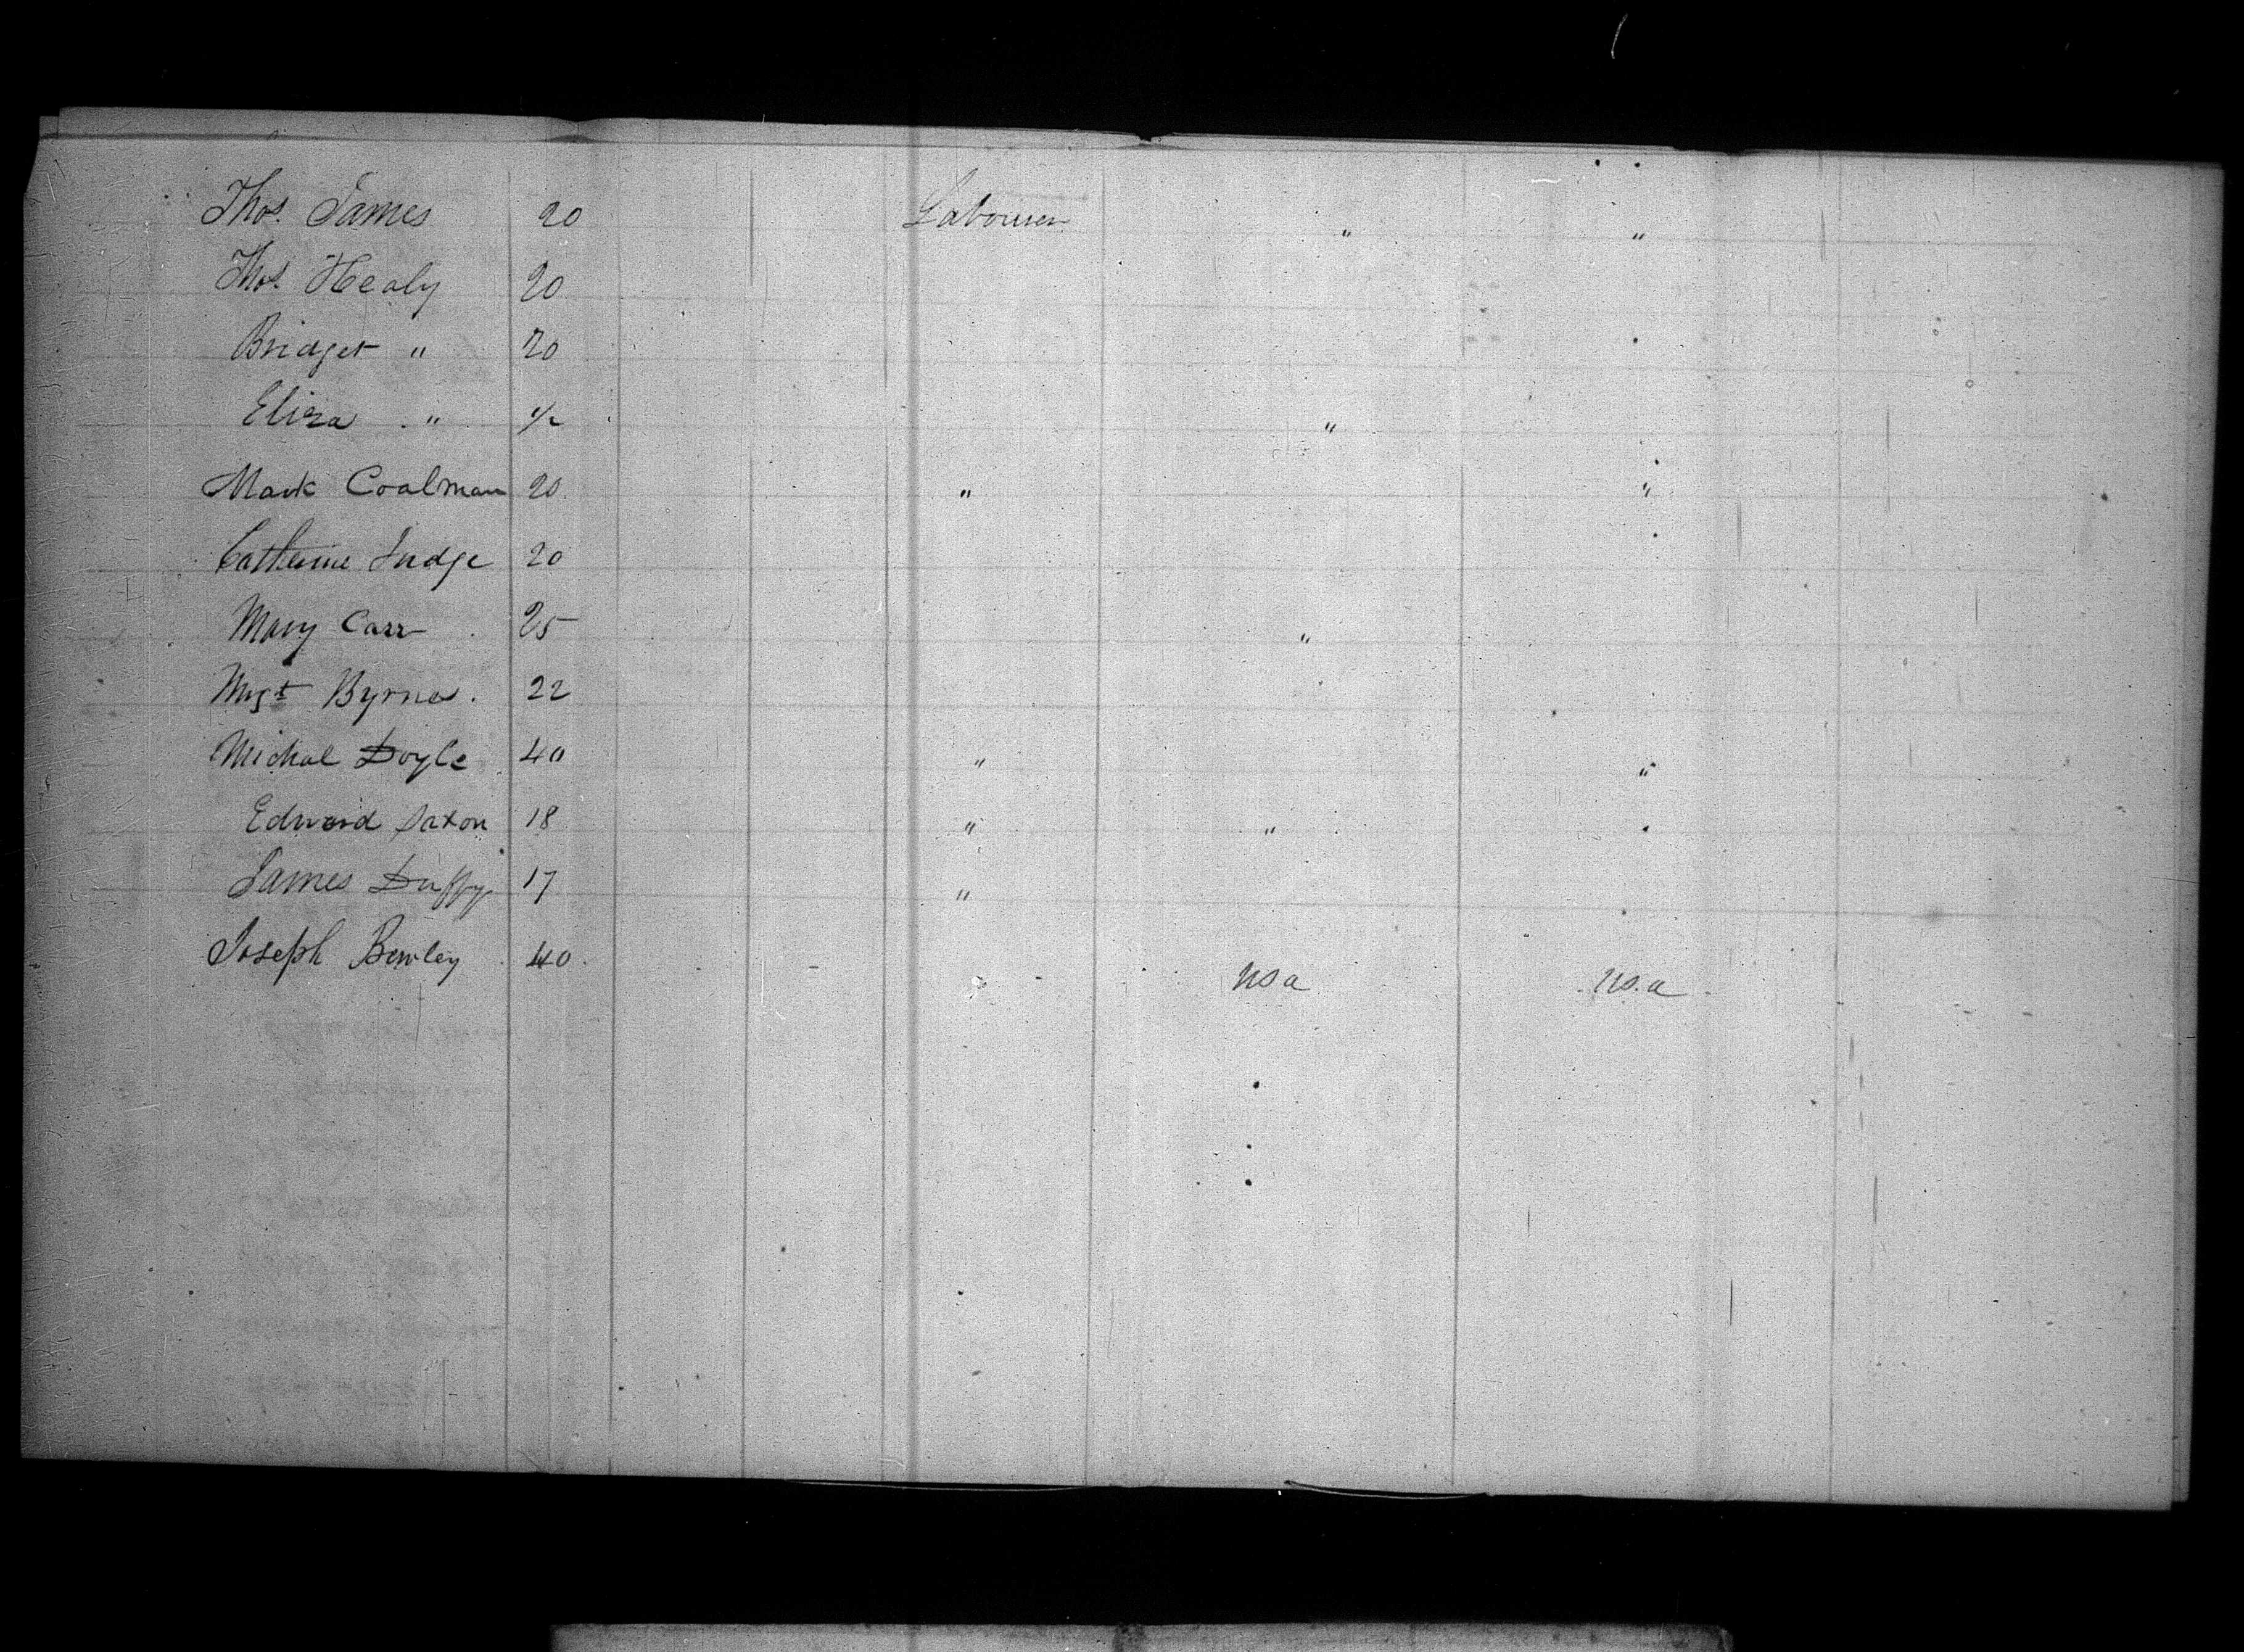 Thos. James 20 Labourer " "
Thos. Healy 20
Bridget " 20
Eliza " 1/2 "
Mark Coalman 20 " "
Catherine Judge 20
Mary Carr 25 "
Mgt Byrnes. 22
Michal Doyle 40 " "
Edward Saxon 18 " "
James Duffy 17 "
Joseph Bewley 40 USa U.S.a